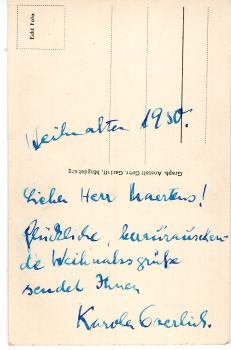 Echt Foto
Weihnachten 1930.
Graph. Anstalt Gebr. Garloff, Magdeburg
Lieber Herr Maertens!
Glückliche,
de Weihnachtsgrüße
sendet Ihnen
Karola